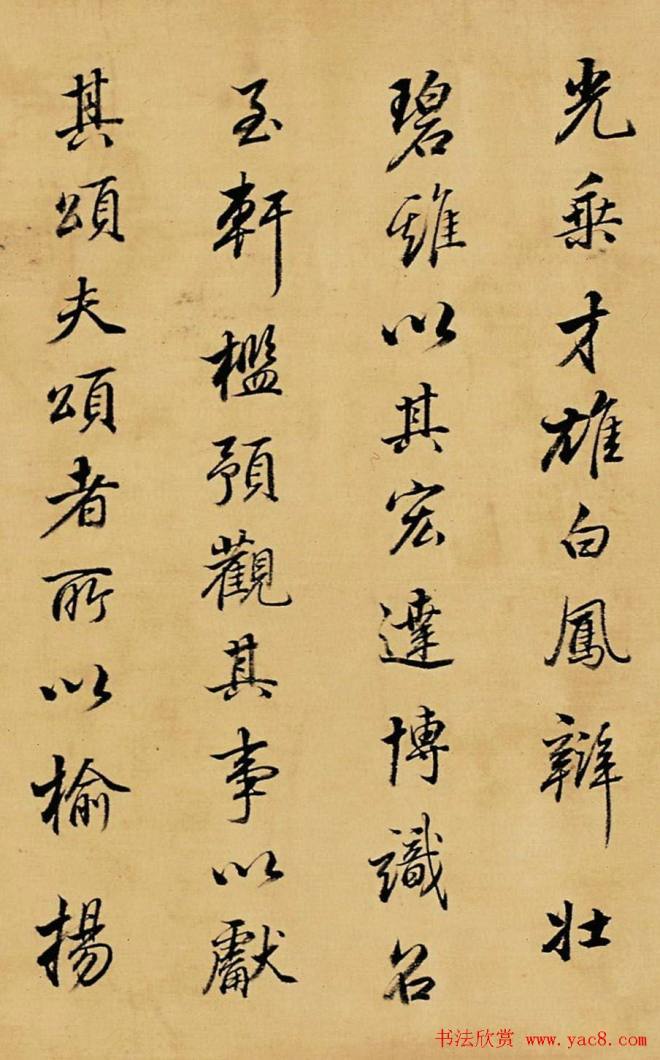 光乗才雄白鳳辯壯
碧雞以其宏達博識名
至軒檻預觀其事以獻
其頌夫頌者所以榆揚
书法欣赏 www.yac8.com